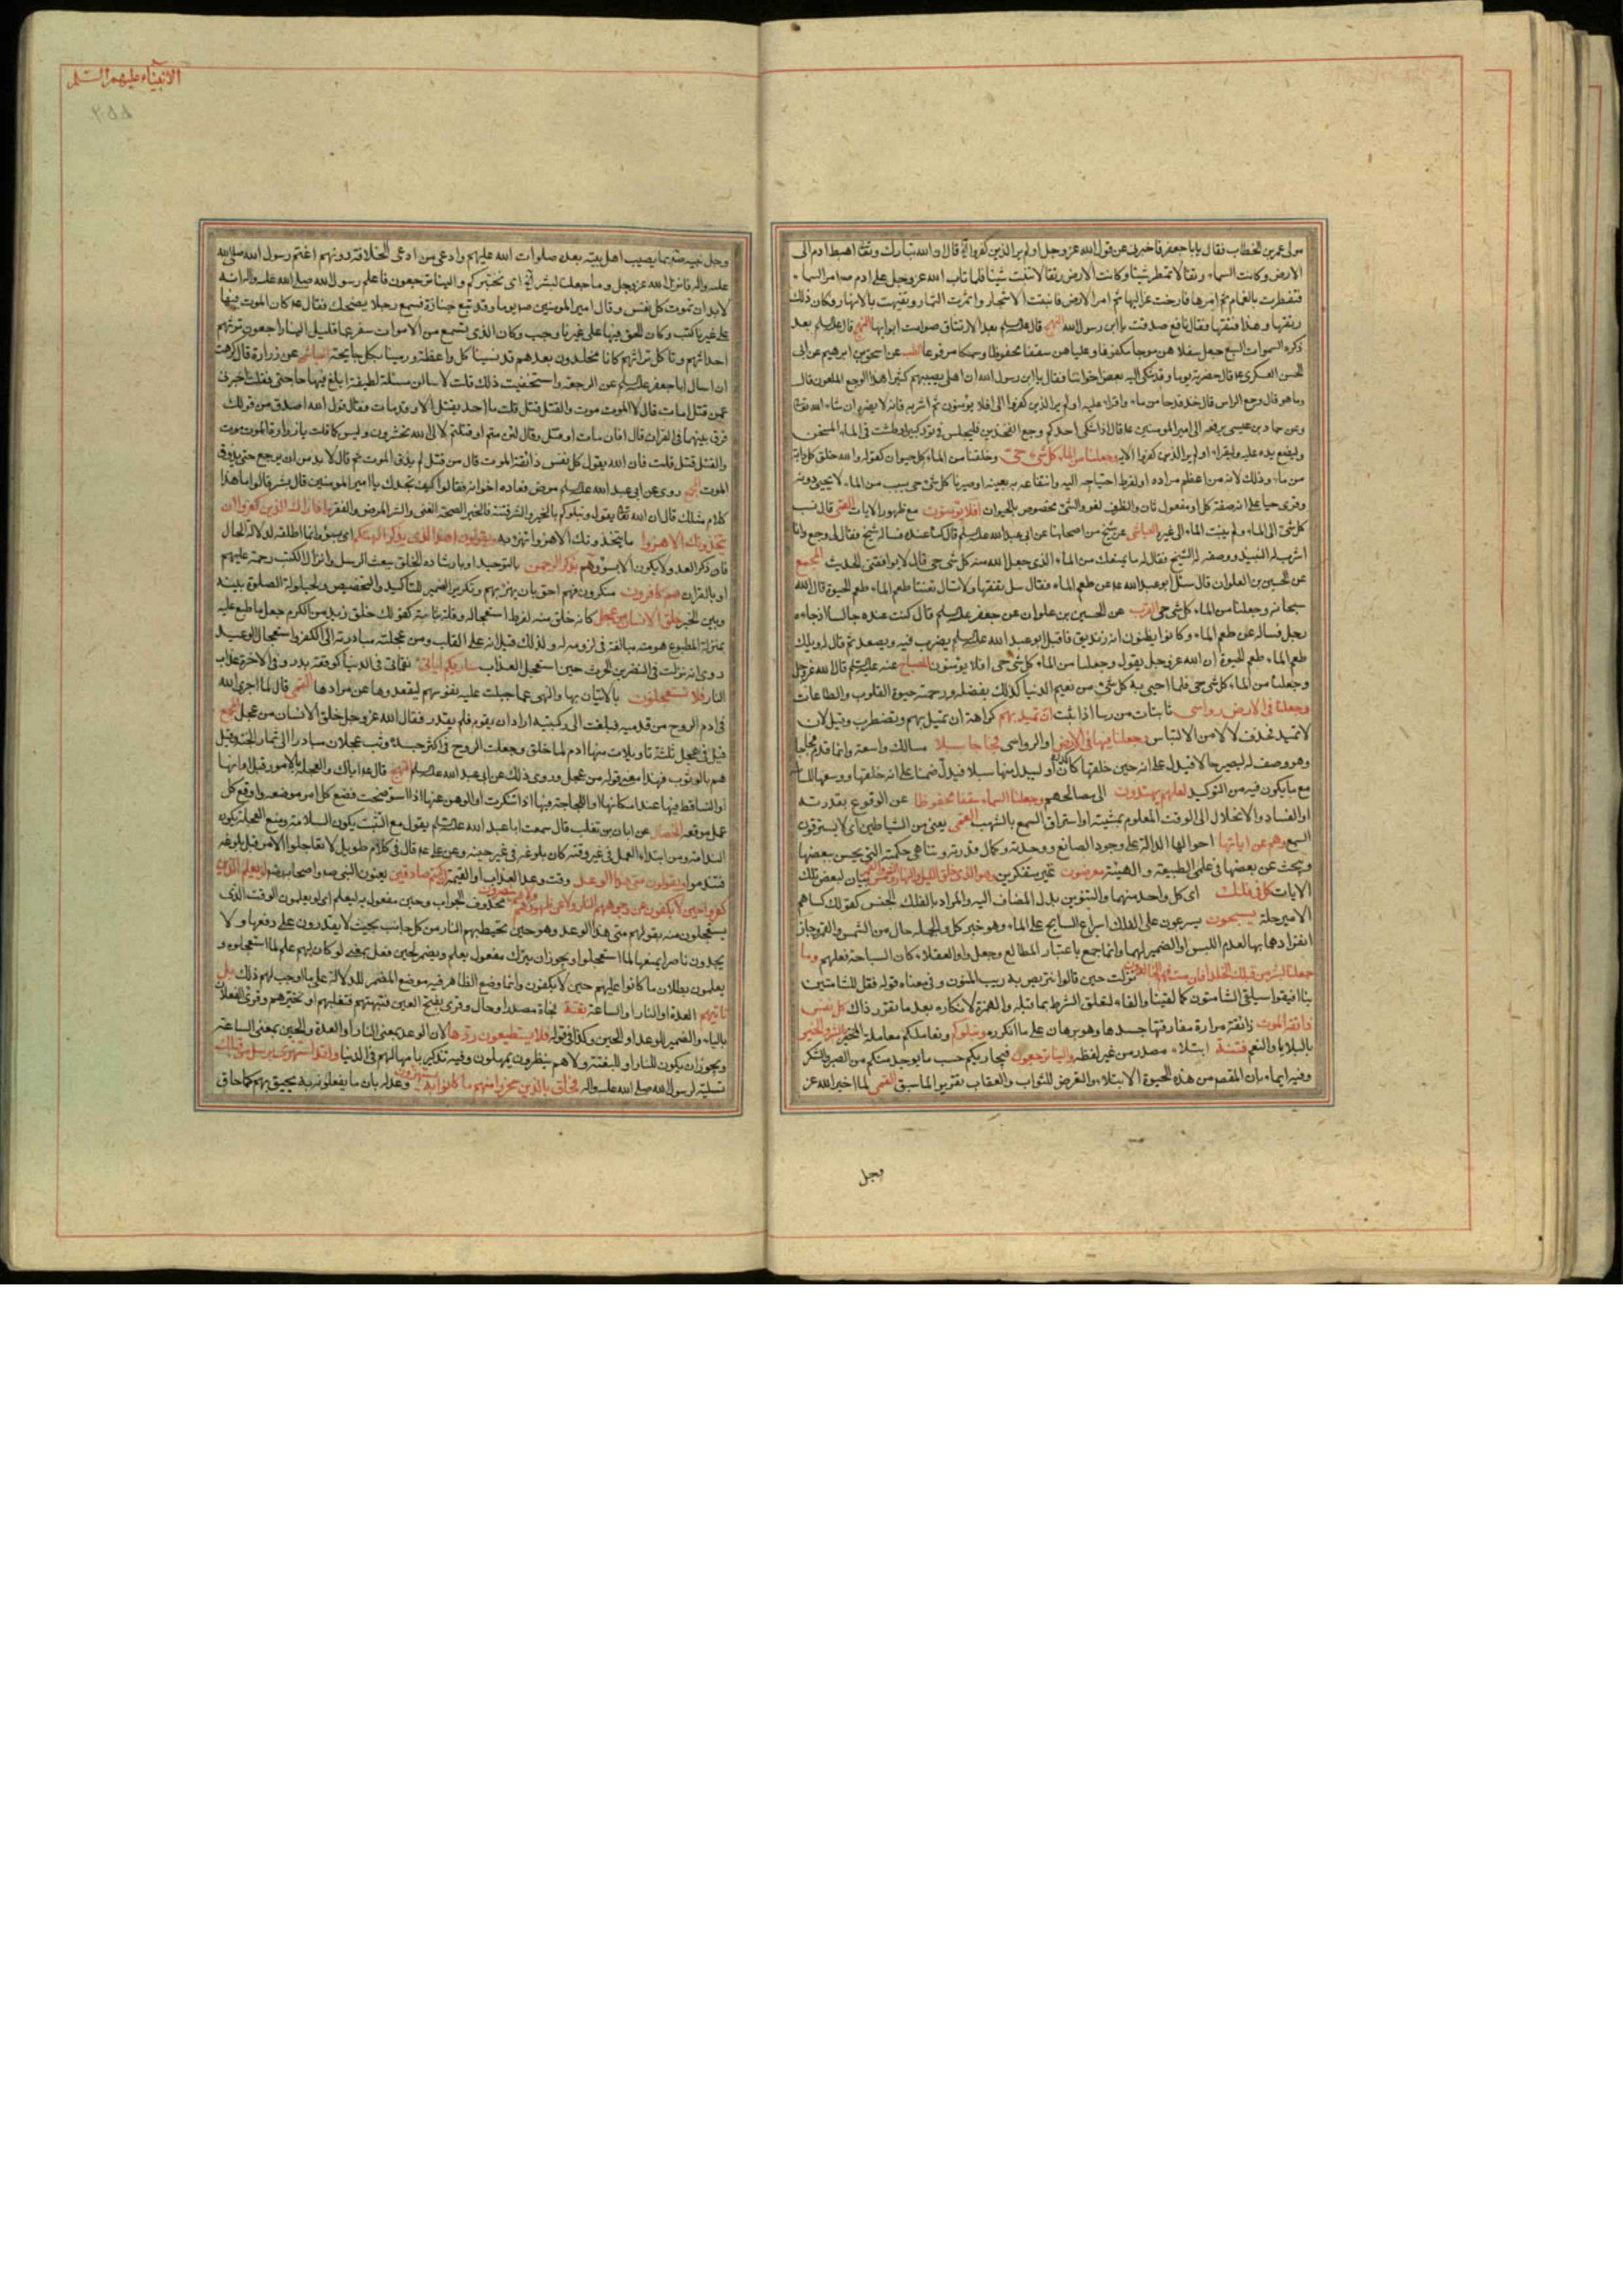 مولى عمر بن الخطاب فقال يابا جعفر فاخبرنى عن قول الله عز وجل اولم ير الذين كفروا الآية قال ان الله تبارك وتعالى اهبط ادم الى
الارض وكانت السماء رتقا لا تمطر شيئا وكانت الارض رتقا لا تنبت شيئا فلما تاب الله عز وجل على ادم امر السماء
فتفطرت بالغمام ثم امرها فارخت عزاليها ثم امر الارض فانبتت الاشجار واثمرت الثمار وتفيهت بالانهار فكان ذلك
رتقها وهذا فتقها فقال نافع صدقت يا ابن رسول الله النهج قال عليه السلام بعد الارتتاق صوامت ابوابها النهج قال عليه السلام بعد
ذكره السموات السبع جعل سفلاهن موجا مكفوفا وعلياهن سقفا محفوظا وسمكا مرفوعا الطب عن اسحق بن ابرهيم عن ابى
الحسن العسكرى قال حضرته يوما وقد شكى اليه بعض اخواننا فقال يا ابن رسول الله ان اهلى يصيبهم كثيرا هذا الوجع الملعون قال
وما هو قال وجع الراس قال خذ قدحا من ماء واقراء عليه اولم ير الذين كفروا الى افلا يؤمنون ثم اشربه فانه لا يضره ان شاء الله تعالى
وعن حماد بن عيسى يرفعه الى امير المومنين قال اذا اشتكى احدكم وجع الفخذين فليجلس فى تور كبير او طشت فى الماء المسخن
وليضع يده عليه وليقراء اولم ير الذين كفروا الاية وجعلنا من الماء كل شىء حى وخلقنا من الماء كل حيوان كقوله والله خلق كل دابة
من ماء وذلك لانه من اعظم مواده او لفرط احتياجه اليه وانتفاعه به بعينه او صيرنا كل شئ حى بسبب من الماء لا يحيى دونه
وقرئ حيا على انه صفة كل او مفعول ثان والظرف لغو والشئ مخصوص بالحيوان افلا يؤمنون مع ظهور الايات القمى قال نسب
كل شئ الى الماء ولم ينسب الماء الى غيره العياشى عن شيخ من اصحابنا عن ابى عبد الله عليه السلام قال كنا عنده فساله شيخ فقال لى وجع وانا
اشرب له النبيذ ووصفه له الشيخ فقال له ما يمنعك من الماء الذى جعل الله منه كل شى حى قال لا يوافقنى الحديث المجمع
عن الحسين بن العلوان قال سئل ابو عبد الله عن طعم الماء فقال سل تفقها ولا تسال تعنتا طعم الماء طعم الحيوة قال الله
سبحانه وجعلنا من الماء كل شى حى القرب عن الحسين بن علوان عن جعفر عليه السلام قال كنت عنده جالسا اذ جاءه
رجل فساله عن طعم الماء وكانوا يظنون انه زنديق فاقبل ابو عبد الله عليه السلام يضرب فيه ويصعد ثم قال له ويلك
طعم الماء طعم الحيوة ان الله عز وجل يقول وجعلنا من الماء كل شئ حى افلا يؤمنون المصباح عنه عليه السلام قال الله عز وجل
وجعلنا من الماء كل شى حى فلما احيى به كل شئ من نعيم الدنيا كذلك بفضله ورحمته حيوة القلوب والطاعات
وجعلنا فى الارض رواسى ثابتات من رسا اذا ثبت ان تميد بهم كراهة ان تميل بهم وتضطرب وقيل لان
لا تميد فحذف لا لامن الالتباس وجعلنا فيها فى الارض او الرواسى فجاجا سبلا مسالك واسعة وانما قدم فجاجا
وهو وصف له ليصير حالا فيدل على انه حين خلقها كان او ليبدل منها سبلا فيدل ضمنا على انه خلقها ووسعها للسابلة
مع ما يكون فيه من التوكيد لعلهم يهتدون الى مصالحهم وجعلنا السماء سقفا محفوظا عن الوقوع بقدرته
او الفساد والانحلال الى الوقت المعلوم بمشيته او استراق السمع بالشهب القمى يعنى من الشياطين اى لا يسترقون
السمع وهم عن اياتها احوالها الدالة على وجود الصانع ووحدته وكمال قدرته وتناهى حكمته التى يحس ببعضها
ويبحث عن بعضها فى علمى الطبيعة والهيئة معرضون غير متفكرين وهو الذى خلق الليل والنهار والشمس والقمر بيان لبعض تلك
الايات كل فى فلك اى كل واحد منهما والتنوين بدل المضاف اليه والمراد بالفلك الجنس كقولك كساهم
الامير حلة يسبحون يسرعون على الفلك اسراع السابح على الماء وهو خبر كل والجملة حال من الشمس والقمر وجاز
انفرادهما بها لعدم اللبس او الضمير لهما وانما جمع باعتبار المطالع وجعل واو العقلاء كان السباحة فعلهم وما
جعلنا لبشر من قبلك الخلد افان مت فهم الخالدون نزلت حين قالوا نتربص به ريب المنون وفى معناه قوله فقل للشامتين
بنا افيقوا سيلقى الشامتون كما لقينا والفاء لتعلق الشرط بما قبله والهمزة لانكاره بعد ما تقرر ذاك كل نفس
ذائقة الموت ذائقة مرارة مفارقتها جسدها وهو برهان على ما انكروه ونبلوكم ونعاملكم معاملة المختبر بالشر والخير
بالبلايا والنعم فتنة ابتلاء مصدر من غير لفظه والينا ترجعون فيجازيكم حسب ما يوجد منكم من الصبر والشكر
وفيه ايماء بان المقصود من هذه الحيوة الابتلاء والتعريض للثواب والعقاب تقريرا لما سبق القمى لما اخبر الله عز
وجل
الانبياء عليهم السلم
٢٥٥
وجل نبيه بما يصيب اهل بيته بعده صلوات الله عليهم وادعى من ادعى الخلافة دونهم اغتم رسول الله صلى الله
عليه واله فانزل الله عز وجل وما جعلنا لبشر الآية اى نختبركم والينا ترجعون فاعلم رسول الله صلى الله عليه واله انه
لابد ان تموت كل نفس وقال امير المومنين يوما وقد تبع جنازة فسمع رجلا يضحك فقال كان الموت فيها
على غيرنا كتب وكان الحق فيها على غيرنا وجب وكان الذى نسمع من الاموات سفر عما قليل الينا راجعون ننزلهم
اجداثهم وناكل تراثهم كانا مخلدون بعدهم قد نسينا كل واعظة ورمينا بكل جايحة العياشى عن زرارة قال كرهت
ان اسال ابا جعفر عليه السلام عن الرجعة واستخفيت ذلك قلت لاسالن مسئلة لطيفة ابلغ فيها حاجتى فقلت اخبرنى
عمن قتل امات قال لا الموت موت والقتل قتل قلت ما احد يقتل الا وقد مات فقال قول الله اصدق من قولك
فرق بينهما فى القران قال افان مات او قتل وقال لئن متم او قتلتم لالى الله تحشرون وليس كما قلت يا زرارة الموت موت
والقتل قتل قلت فان الله يقول كل نفس ذائقة الموت قال من قتل لم يذق الموت ثم قال لا بد من ان يرجع حتى يذوق
الموت المجمع روى عن ابى عبد الله عليه السلام مرض فعاده اخوانه فقالوا كيف نجدك يا امير المومنين قال بشر قالوا ما هذا
كلام مثلك قال ان الله تعالى يقول ونبلوكم بالخير والشر فتنة فالخير الصحة والغنى والشر المرض والفقر واذا راك الذين كفروا ان
يتخذونك الا هزوا ما يتخذونك الا هزوا مهزوا به ويقولون اهذا الذى يذكر الهتكم اى بسوء وانما اطلقه لدلالة الحال
فان ذكر العدو لا يكون الا بسوء وهم بذكر الرحمن بالتوحيد او بارشاده الخلق ببعث الرسل وانزال الكتب رحمة عليهم
او بالقران هم كافرون منكرون فهم احق بان يهزء بهم وتكرير الضمير للتاكيد والتخصيص ولحيلولة الصلوة بينه
وبين الخبر خلق الانسان من عجل كانه خلق منه لفرط استعجاله وقلة ثباته كقولك خلق زيد من الكرم جعل ما طبع عليه
بمنزلة المطبوع هو منه مبالغة فى لزومه له ولذلك قيل انه على القلب ومن عجلته مبادرته الى الكفر واستعجال الوعيد
روى انه نزلت فى النضر بن الحرث حين استعجل العذاب ساريكم اياتى نقماتى فى الدنيا كوقعة بدر وفى الاخرة عذاب
النار فلا تستعجلون بالاتيان بها والنهى عما جبلت عليه نفوسهم ليقعدوها عن مرادها القمى قال لما اجرى الله
فى ادم الروح من قدميه فبلغت الى ركبتيه اراد ان يقوم فلم يقدر فقال الله عز وجل خلق الانسان من عجل المجمع
قيل فى عجل ثلثة تاويلات منها ادم لما خلق وجعلت الروح فى اكثر جسده وثب عجلان مبادرا الى ثمار الجنة وقيل
هم بالوثوب فهذا معنى قوله من عجل وروى ذلك عن ابى عبد الله عليه السلام النهج قال اياك والعجلة بالامور قبل اوانها
او التساقط فيها عند امكانها او اللجاجة فيها اذا تنكرت او الوهن عنها اذا استوضحت فضع كل امر موضعه واوقع كل
عمل موقعه الخصال عن ابان بن تغلب قال سمعت ابا عبد الله عليه السلام يقول مع التثبت يكون السلامة ومع العجلة يكون
الندامة ومن ابتداء العمل فى غير وقته كان بلوغه فى غير حينه وعن على قال فى كلام طويل لا تعاجلوا الامر قبل بلوغه
فتندموا ويقولون متى هذا الوعد وقت وعد العذاب او القيمة ان كنتم صادقين يعنون النبى واصحابه لو يعلم الذين
كفروا حين لا يكفون عن وجوههم النار ولا عن ظهورهم ولا هم ينصرون محذوف الجواب وحين مفعول به ليعلم اى لو يعلمون الوقت الذى
يستعجلون منه بقولهم متى هذا الوعد وهو حين تحيط بهم النار من كل جانب بحيث لا يقدرون على دفعها ولا
يجدون ناصرا يمنعها لما استعجلوا ويجوز ان يترك مفعول يعلم ويضمر لحين فعل بمعنى لو كان لهم علم لما استعجلوه و
يعلمون بطلان ما كانوا عليهم حين لا يكفون وانما وضع الظاهر فيه موضع المضمر للدلالة على ما اوجب لهم ذلك بل
تاتيهم العدة او النار او الساعة بغتة فجاة مصدر او حال وقرئ بفتح العين فتبهتهم فتغلبهم او تحيرهم وقرئ الفعلان
بالياء والضمير للوعد او الحين وكذا فى قوله فلا يستطيعون ردها لان الوعد بمعنى النار او العدة والحين بمعنى الساعة
ويجوز ان يكون للنار او للبغتة ولا هم ينظرون يمهلون وفيه تذكير بامهالهم فى الدنيا ولقد استهزئ برسل من قبلك
تسلية لرسول الله صلى الله عليه واله فحاق بالذين سخروا منهم ما كانوا به يستهزؤن وعد له بان ما يفعلونه به يحيق بهم كما حاق